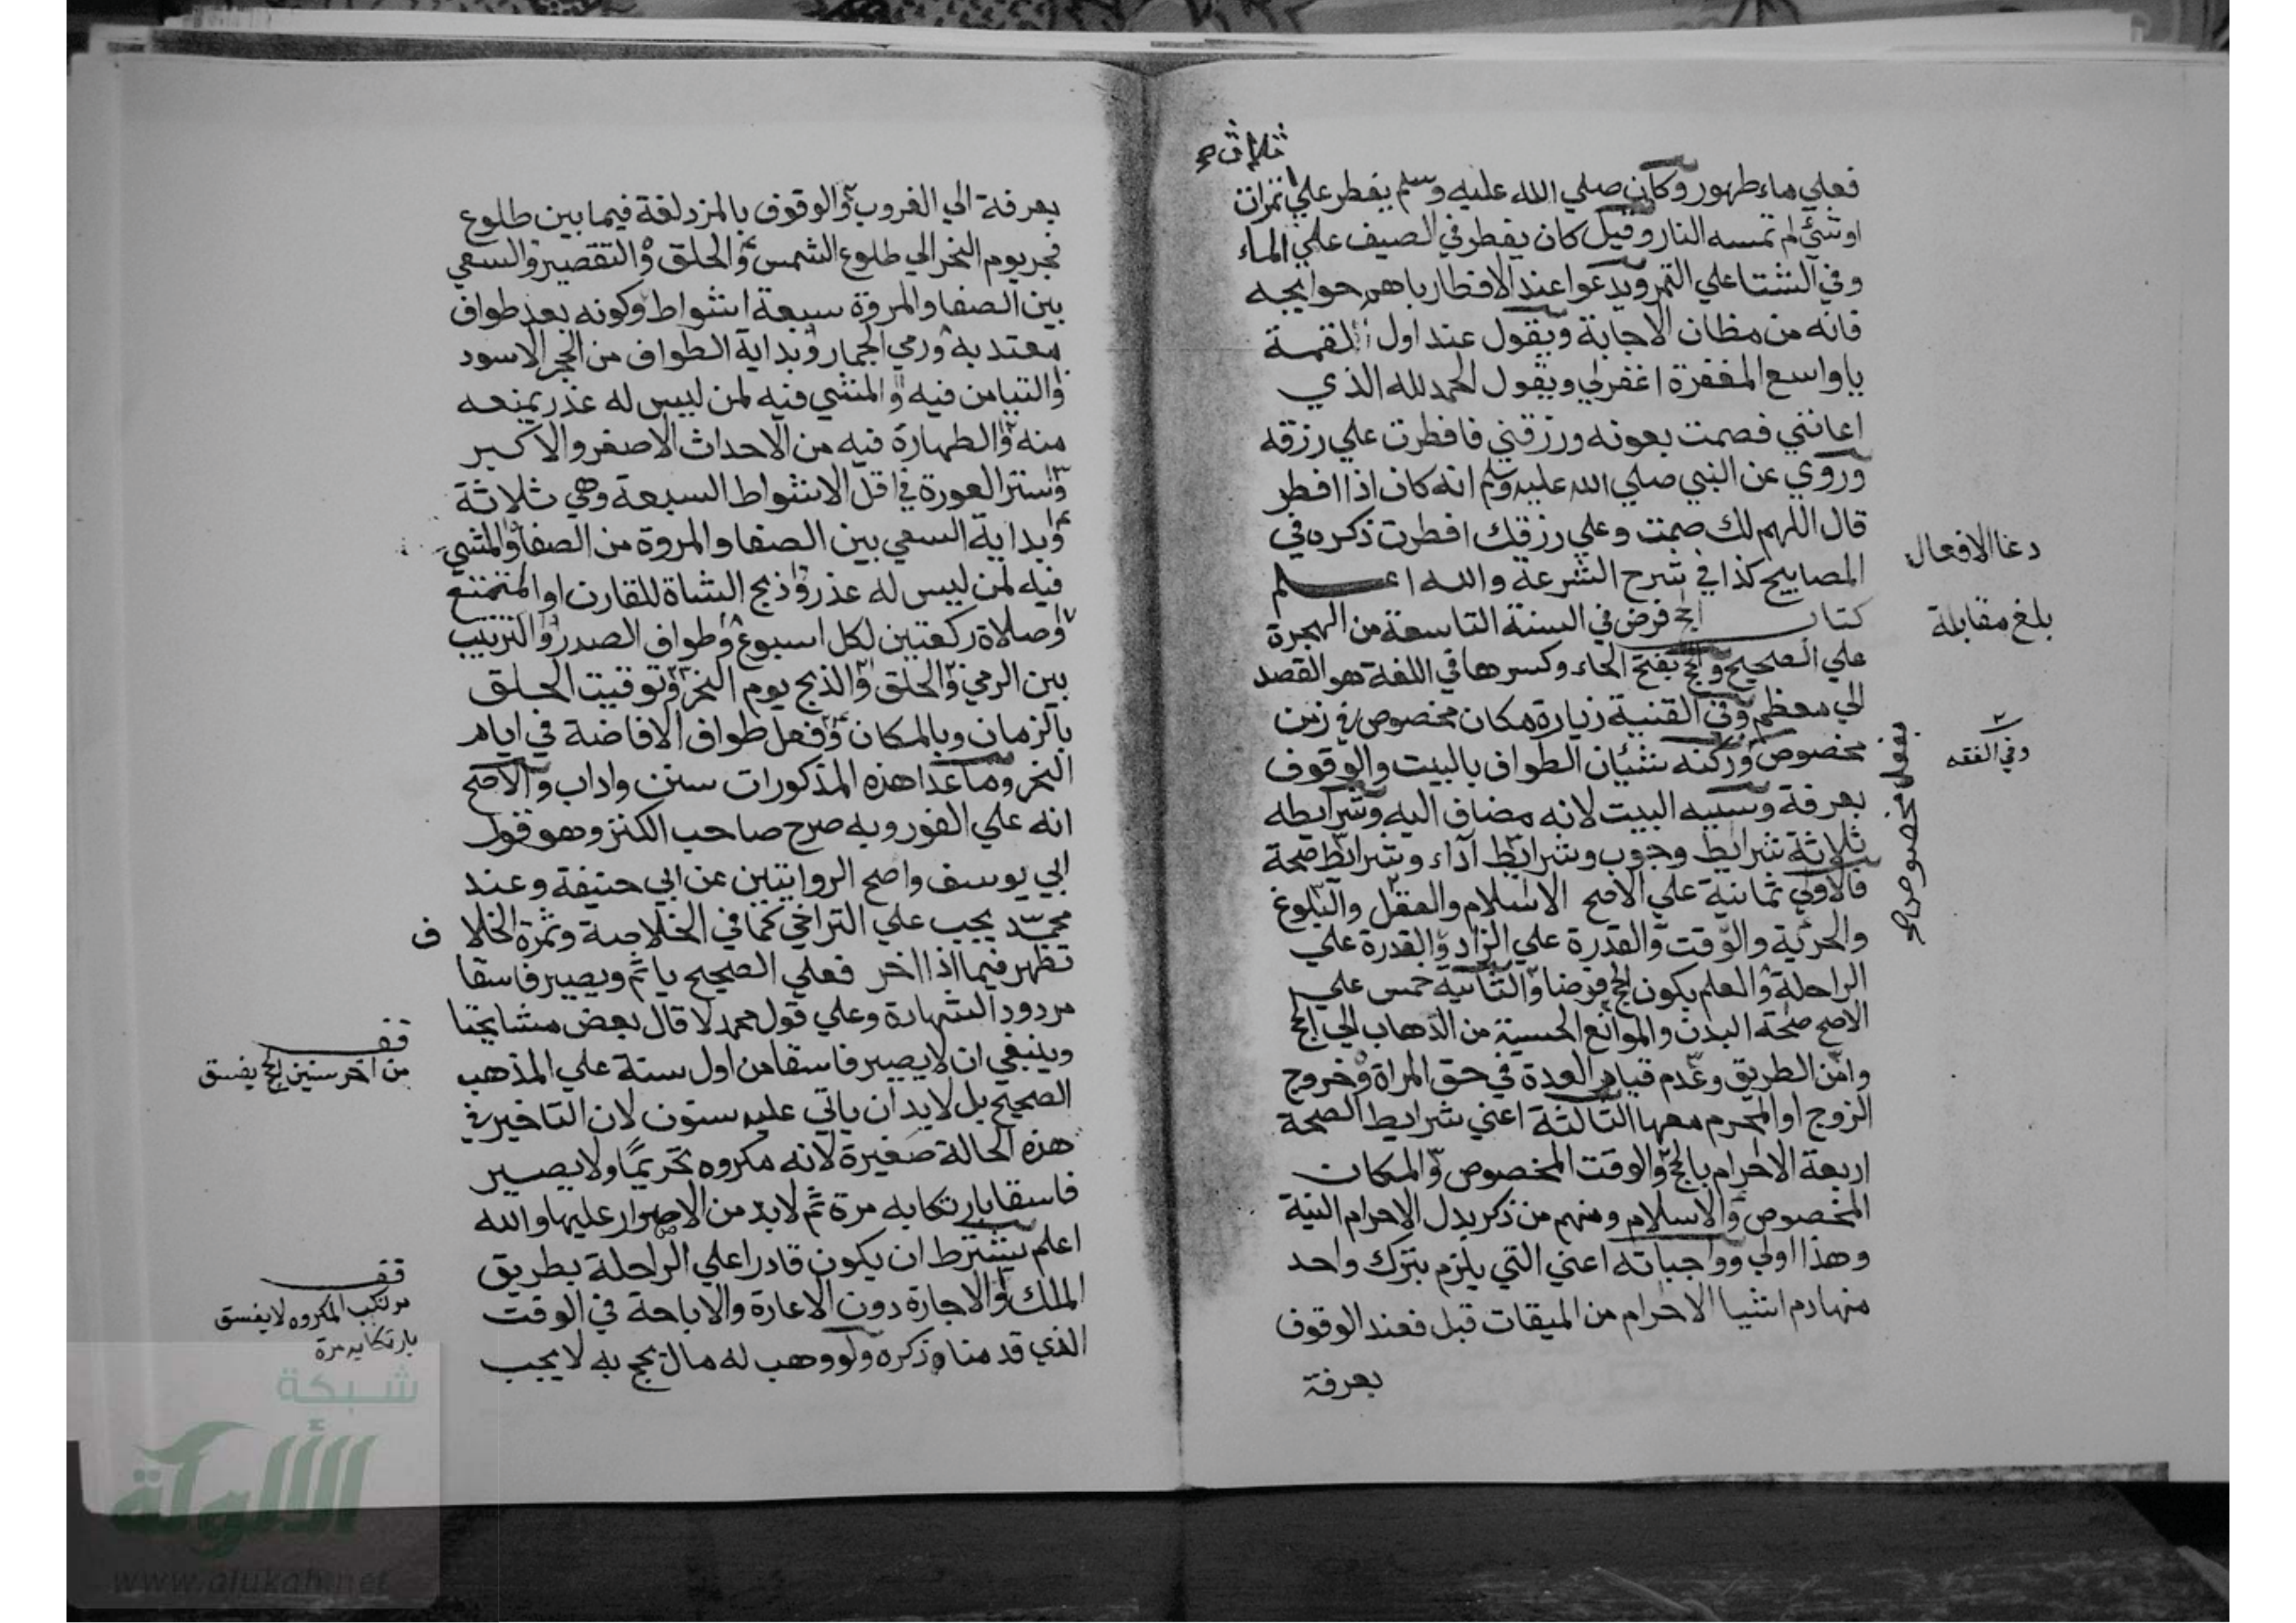 ثلاث صح
فعلي ماء طهور وكان صلي الله عليه وسلم يفطر علي تمرات
اوشئ لم تمسه النار وقيل كان يفطر في الصيف علي الماء
وفي الشتا علي التمر ويدعوا عند الافطار باهم حوايجه
فانه من مظان الاجابة ويقول عند اول لقمة
ياواسع المغفرة اغفرلي ويقول الحمد لله الذي
اعانني فصمت بعونه ورزقني فافطرت علي رزقه
وروي عن النبي صلي الله عليه وسلم انه كان اذا افطر
قال اللهم لك صمت وعلي رزقك افطرت ذكره في
المصابيح كذا في شرح الشرعة والله اعلم
كتاب الحج فرض في السنة التاسعة من الهجرة
علي الصحيح والحج بفتح الحاء وكسرها في اللغة هو القصد
الي معظم وفي القنية زيارة مكان مخصوص في زمن
مخصوص وركنه شئيان الطواف بالبيت والوقوف
بعرفة وسببه البيت لانه مضاف اليه وشرايطه
ثلاثة شرايط وجوب وشرايط آداء وشرايط صحة
فالاولي ثمانية علي الاصح الاسلام والعقل والبلوغ
والحرية والوقت والقدرة علي الزاد والقدرة علي
الراحلة والعلم بكون الحج فرضا والثانية خمس علي
الاصح صحة البدن والموانع الحسية من الذهاب الي الحج
وامن الطريق وعدم قيام العدة في حق المراة وخروج
الزوج او المحرم معها الثالثة اعني شرايط الصحة
اربعة الاحرام بالحج والوقت المخصوص والمكان
المخصوص والاسلام ومنهم من ذكر بدل الاحرام النية
وهذا اولي وواجباته اعني التي يلزم بترك واحد
منها دم اشيا الاحرام من الميقات قبل فعند الوقوف
بعرفة
دعا الافعال
بلغ مقابلة
وفي الفقه
بفعل مخصوص صح
بعرفة الي الغروب والوقوف بالمزدلفة فيما بين طلوع
فجر يوم النحر الي طلوع الشمس والحلق والتقصير والسعي
بين الصفا والمروة سبعة اشواط وكونه بعد طواف
معتد به ورمي الجمار وبداية الطواف من الحجر الاسود
والتيامن فيه والمشي فيه لمن ليس له عذر يمنعه
منه والطهارة فيه من الاحداث الاصغر والاكبر
وستر العورة في اقل الاشواط السبعة وهي ثلاثة
وبداية السعي بين الصفا والمروة من الصفا والمشي
فيه لمن ليس له عذر وذبح الشاة للقارن او المتمتع
وصلاة ركعتين لكل اسبوع وطواف الصدر والترتيب
بين الرمي والحلق والذبح يوم النحر وتوقيت الحلق
بالزمان وبالمكان وفعل طواف الافاضة في ايام
النحر وما عدا هذه المذكورات سنن واداب والاصح
انه علي الفور وبه صرح صاحب الكنز وهو قول
ابي يوسف واصح الروايتين عن ابي حنيفة وعند
محمد يجب علي التراخي كما في الخلاصة وثمرة الخلاف
تظهر فيما اذا اخر فعلي الصحيح ياثم ويصير فاسقا
مردود الشهادة وعلي قول محمد لا قال بعض مشايخنا
وينبغي ان لا يصير فاسقا من اول سنة علي المذهب
الصحيح بل لابد ان ياتي عليه سنون لان التاخير في
هذه الحالة صغيرة لانه مكروه تحريما ولا يصير
فاسقا بارتكابه مرة ثم لابد من الاصرار عليها والله
اعلم يشترط ان يكون قادرا علي الراحلة بطريق
الملك او الاجارة دون الاعارة والاباحة في الوقت
الذي قدمنا ذكره ولو وهب له مال يحج به لا يجب
قف
من اخر سنين الحج يفسق
قف
مرتكب المكروه لا يفسق
بارتكابه مرة
شبكة
الألوكة
www.alukah.net